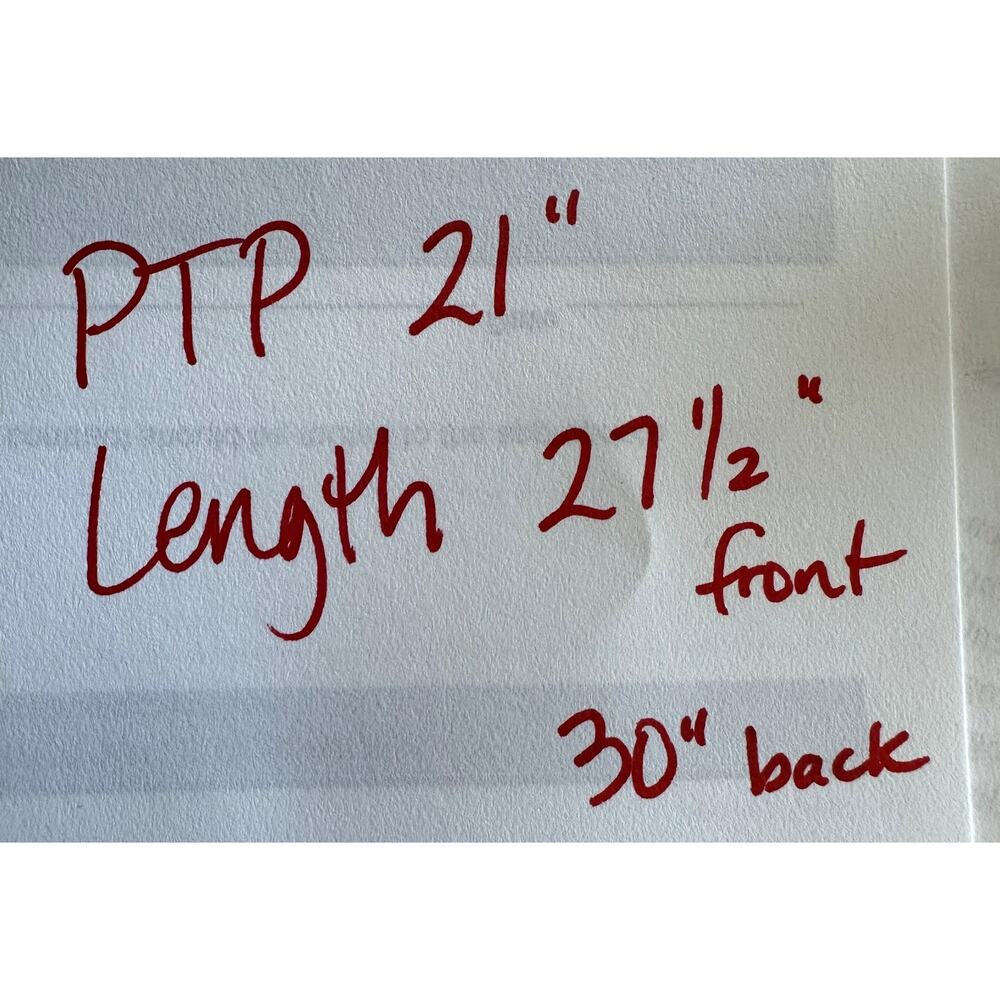 PTP 21"
Length 27 1/2"
front
30" back